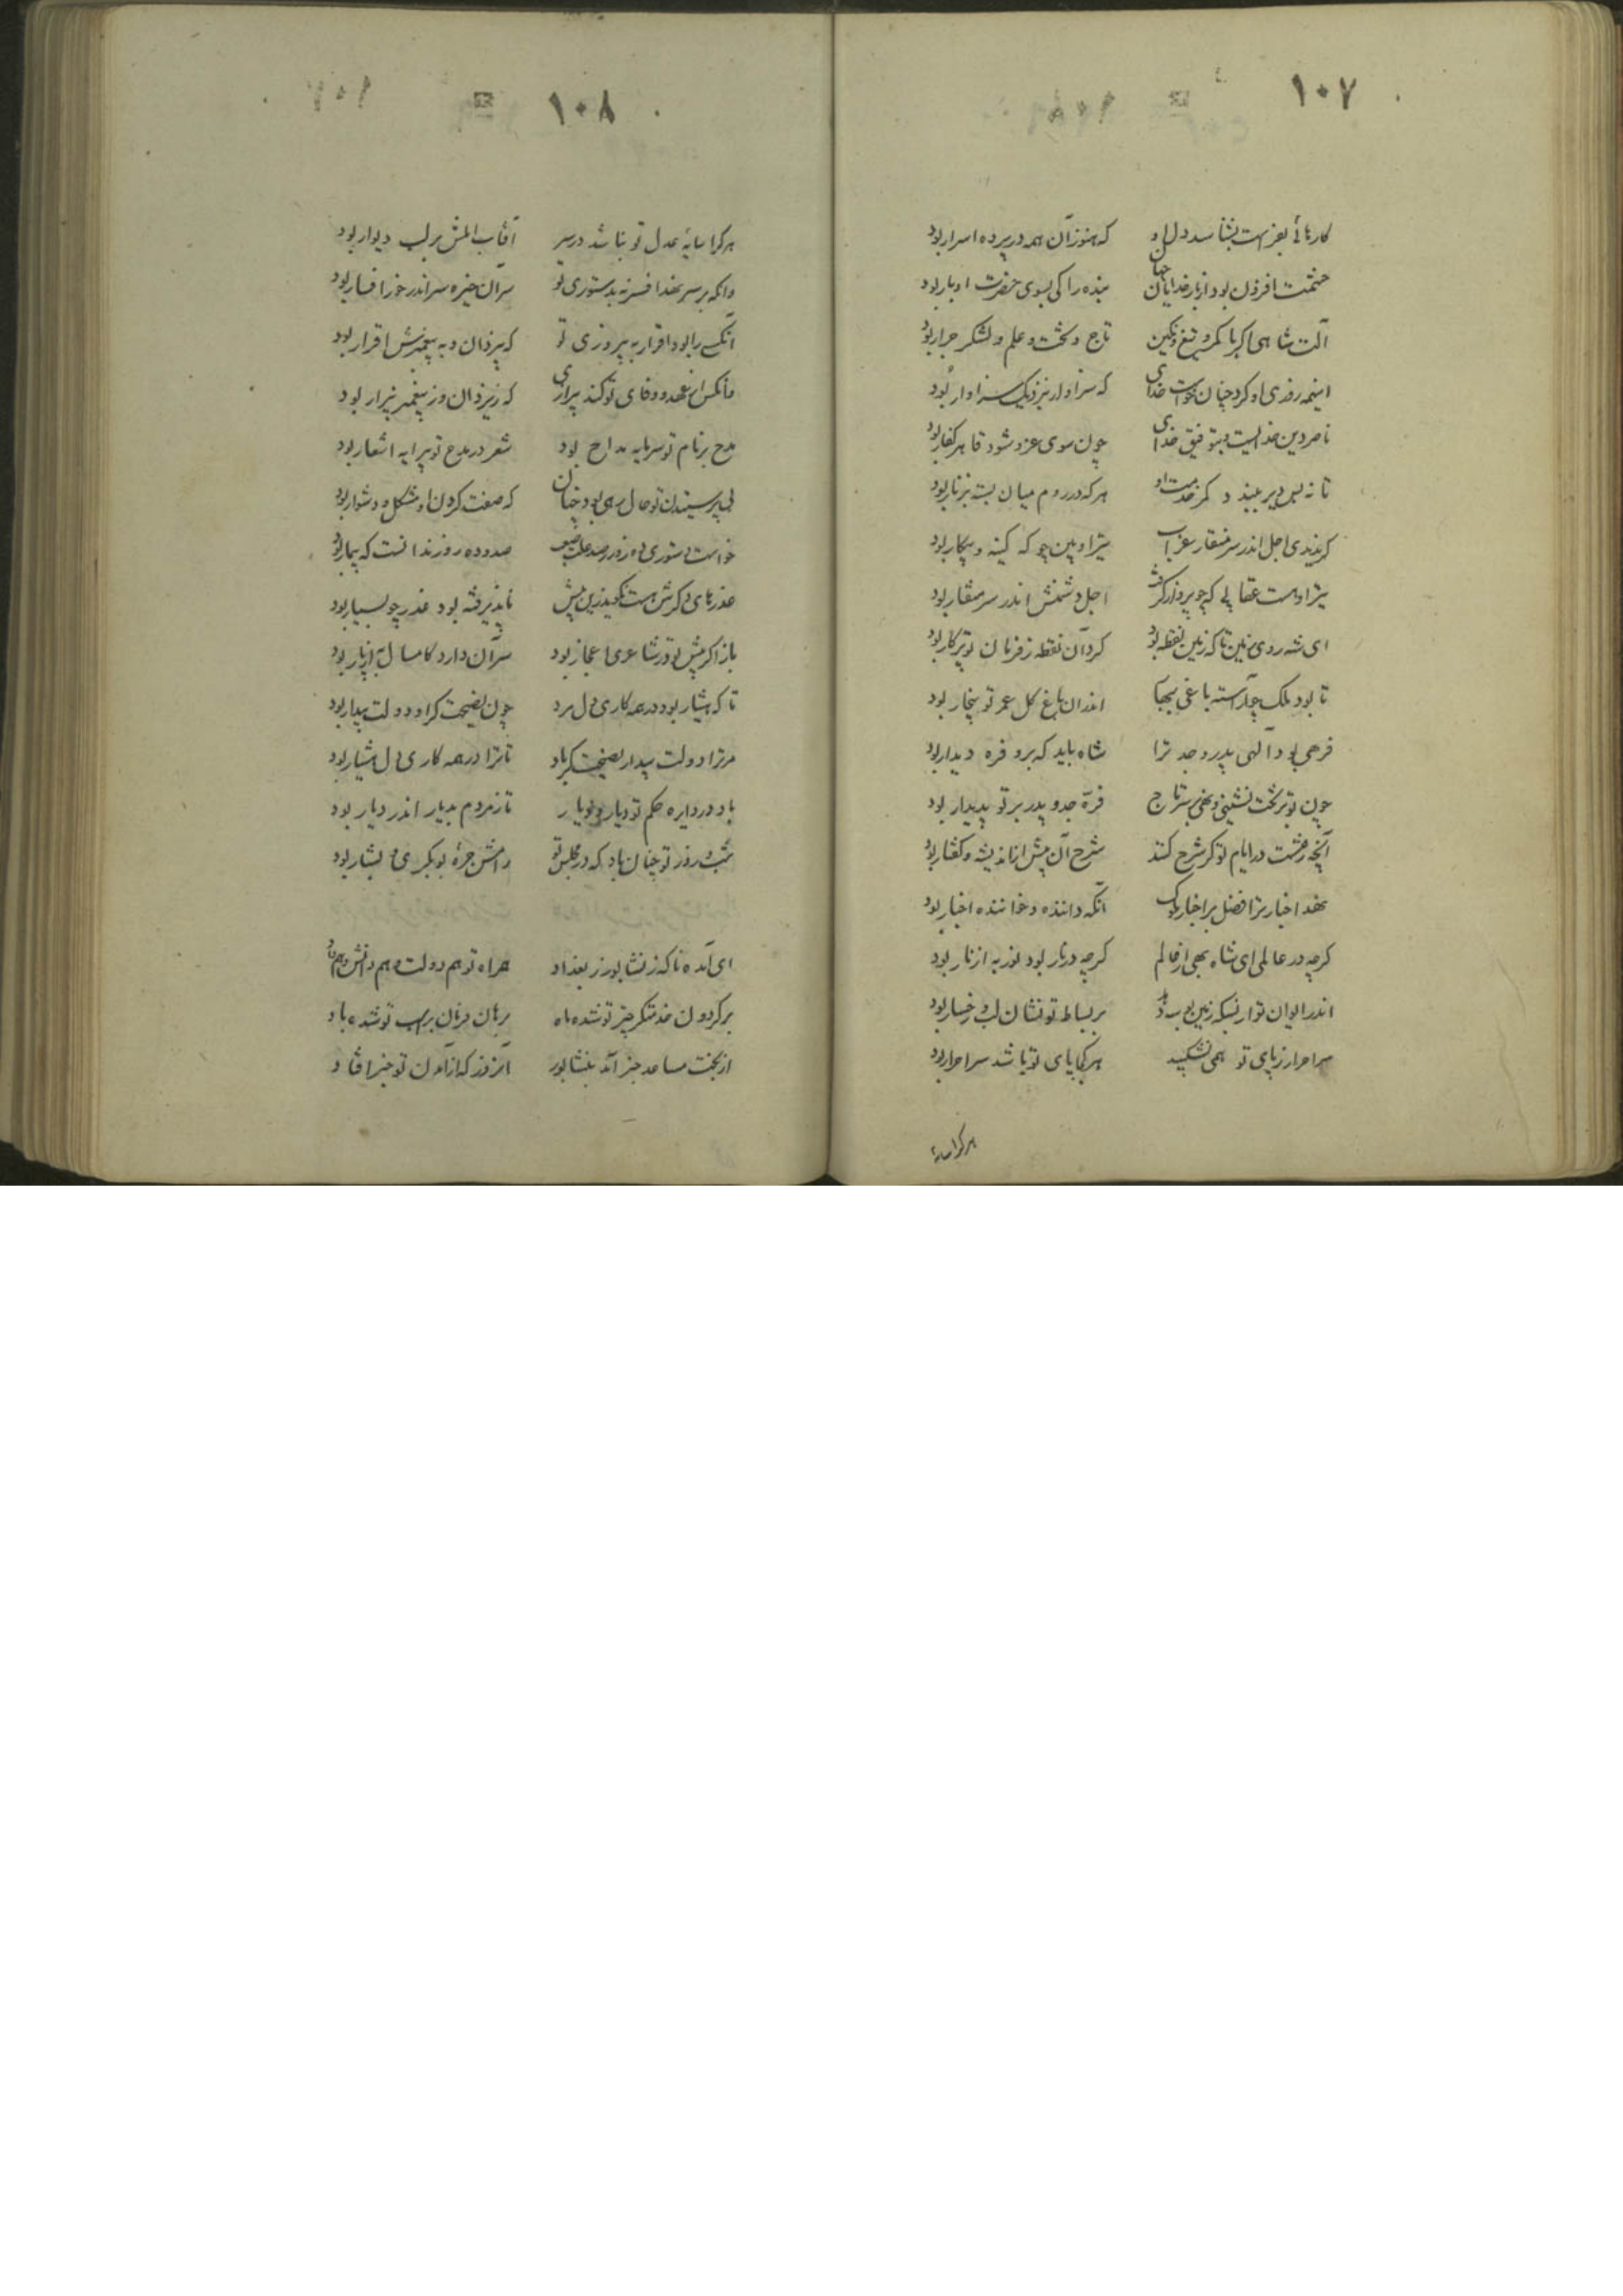 ۱۰۷
کارهائی بعزیمت بشناسد دل او که هنوز آن همه در پرده اسرار بود
حشمت افزون بود از بار خدایان جهان بنده را کی بسوی حضرت او بار بود
آلت شاهی اکر با کمر و تیغ و نکین تاج و تخت و علم و لشکر جرار بود
اینهمه روزی او کرد چنان خواست خدای که سزاوار بنزدیک سزاوار بود
ناصر دین خدایست بتوفیق خدای چون سوی غزو شود قاهر کفار بود
تا نه بس دیر ببندد کمر خدمت او هر که در روم میان بسته بزنار بود
کر ندیدی اجل اندر سر منقار عقاب تیر او بین چو که کینه و پیکار بود
تیر او هست عقابی که چو پرواز کرفت اجل دشمنش اندر سر منقار بود
ای شه روی زمین تا که زمین نقطه بود کرد آن نقطه ز فرمان تو پرکار بود
تا بود ملک چو آراسته باغی بجهان اندران باغ کل عمر تو بیخار بود
فرهی بود آلهی پدر و جد ترا شاه باید که برو فره دیدار بود
چون تو بر تخت نشینی و نهی بر سر تاج فرّه جد و پدر بر تو پدیدار بود
آنچه رفتست در ایام تو کر شرح کنند شرح آن بیش از اندیشه و کفتار بود
نهد اخبار ترا فضل بر اخبار ملوک آنکه داننده و خواننده اخبار بود
کرچه در عالمی ای شاه بهی از عالم کرچه در نار بود نور به از نار بود
اندر ایوان تو از بسکه زمین بوسه دهند بر بساط تو نشان لب و رخسار بود
سر احرار ز پای تو همی نشکیبد هر کجا پای تو باشد سر احرار بود
هر کرا سایهٔ
۱۰۸
هر کرا سایهٔ عدل تو نباشد در سر آفتاب املش بر لب دیوار بود
وانکه بر سر نهد افسر نه بدستوری تو سر آن خیره سر اندر خور افسار بود
آنکسی را بود اقرار به پیروزی تو که بیزدان و به پیغمبرش اقرار بود
وانکس از عهد و وفای تو کند بیزاری که ز یزدان و ز پیغمبر بیزار بود
مدح بر نام تو سرمایه مداح بود شعر در مدح تو پیرایه اشعار بود
بی پرسیدن تو حال رهی بود چنان که صفت کردن او مشکل و دشوار بود
خواست دستوری ده روز و صد و ده روز ندانست که بیمار بود
عذرهای دکرش هست نکوید زین بیش ناپذیرفته بود عذر چو بسیار بود
باز اکر پیش تو در شاعری اعجاز بود سر آن دارد کامسال به از پار بود
تا که هشیار بود در همه کاری دل مرد چون نصیحت کر او دولت بیدار بود
مر ترا دولت بیدار نصیحت کر باد تا ترا در همه کاری دل هشیار بود
باد در دایره حکم تو دیار و دیار تا ز مردم بدیار اندر دیار بود
شب و روز تو چنان باد که در مجلس تو رامش جره بوبکری و بشار بود
ای آمده ناکه ز نشابور ز بغداد همراه تو هم دولت و هم دانش و هم داد
بر کردون خدمتکر چیز تو شده ماه بر هان فرمان بر اسب تو شده باد
از بخت مساعد خبر آمد بنشابور آنروز که از آمدن تو خبر افتاد